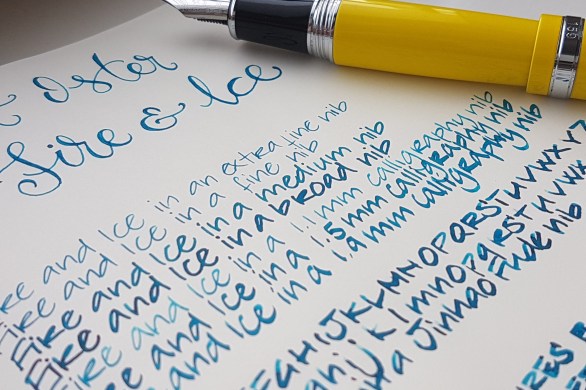 t Oster
Fire & Ice
Fire and Ice in an extra fine nib
Fire and Ice in a fine nib
Fire and Ice in a medium nib
Fire and Ice in a broad nib
Fire and Ice in a 1.1 mm calligraphy nib
and Ice in a 1.5 mm calligraphy nib
and Ice in a 1.9 mm calligraphy nib
FGHIJKLMNOPQRSTUVWXYZ
ghijklmnopqrstuvwx
a Jinhao Fude nib
159